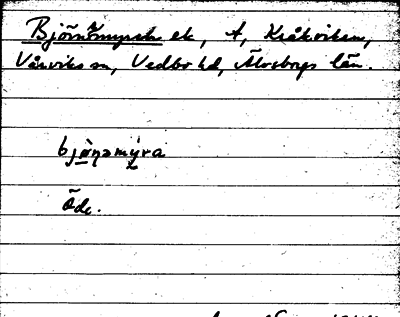 Björnemyren etc, A, Kråkviken,
Vårviks sn, Vedbo hd, Älvsborgs län.
bjö̀ṇəmýra
Öde.